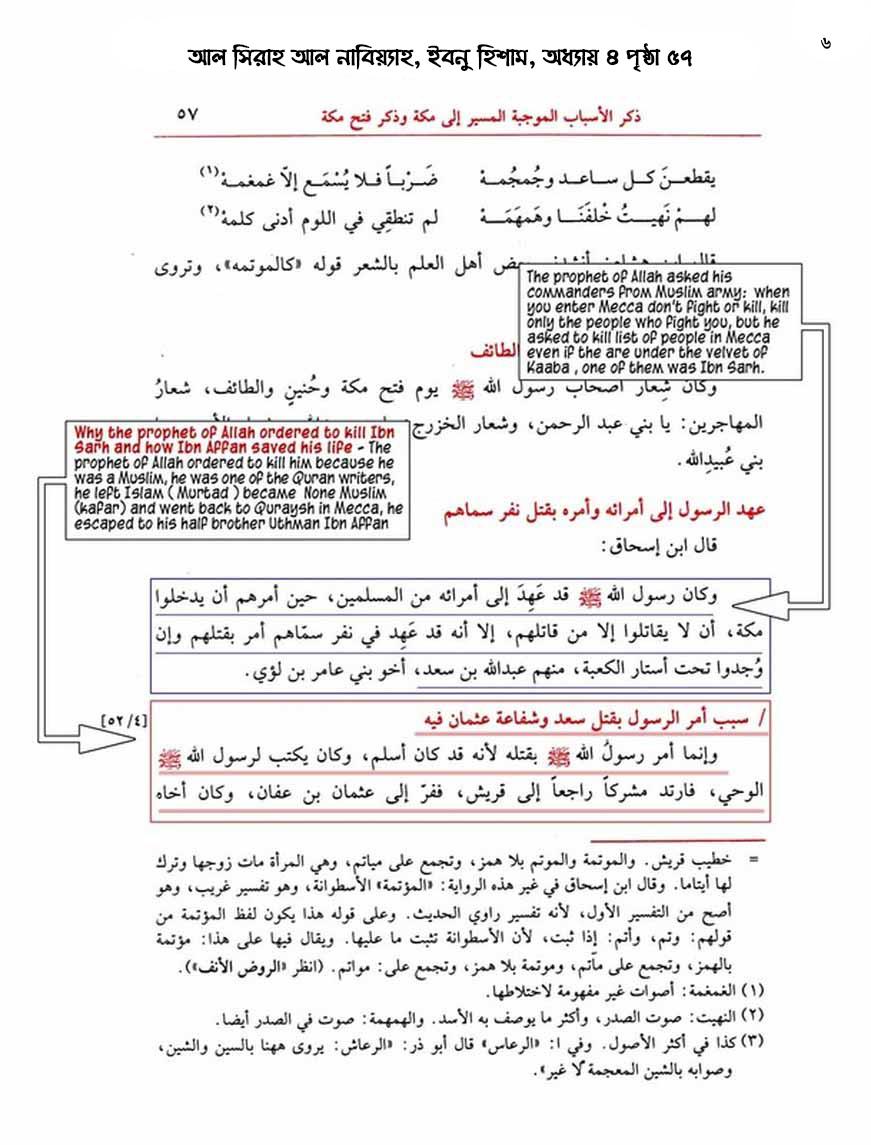 ৬
আল সিরাহ আল নাবিয়্যাহ, ইবনু হিশাম, অধ্যায় ৪ পৃষ্ঠা ৫৭
ذكر الأسباب الموجبة المسير إلى مكة وذكر فتح مكة ٥٧
يقطعـنَ كـل سـاعـد وجُمجُمـهْ ضَرْبـاً فـلا يُسْمَـع إلاّ غمغمـهْ(١)
لهـمْ نَهيـتُ خْلفَنَـا وهَمهَمَـهْ لم تنطقِي في اللوم أدنى كلمهْ(٢)
أهل العلم بالشعر قوله «كالموتمه»، وتروى
The prophet of Allah asked his
commanders from Muslim army: when
you enter Mecca don't fight or kill, kill
only the people who fight you, but he
asked to kill list of people in Mecca
even if the are under the velvet of
Kaaba , one of them was Ibn Sarh.
والطائف
وكان شِعار أصحاب رسول الله ﷺ يوم فتح مكة وحُنينٍ والطائف، شعارُ
المهاجرين: يا بني عبد الرحمن، وشعار الخزرج
بني عُبيدِالله.
Why the prophet of Allah ordered to kill Ibn
Sarh and how Ibn Affan saved his life - The
prophet of Allah ordered to kill him because he
was a Muslim, he was one of the Quran writers,
he left Islam ( Murtad ) became None Muslim
(kafar) and went back to Quraysh in Mecca, he
escaped to his half brother Uthman Ibn Affan
عهد الرسول إلى أمرائه وأمره بقتل نفر سماهم
قال ابن إسحاق:
وكان رسول الله ﷺ قد عَهِدَ إلى أمرائه من المسلمين، حين أمرهم أن يدخلوا
مكة، أن لا يقاتلوا إلا من قاتلهم، إلا أنه قد عَهِد في نفر سمّاهم أمر بقتلهم وإن
وُجدوا تحت أستار الكعبة، منهم عبدالله بن سعد، أخو بني عامر بن لؤي.
[٥٢/٤] / سبب أمر الرسول بقتل سعد وشفاعة عثمان فيه
وإنما أمر رسولُ الله ﷺ بقتله لأنه قد كان أسلم، وكان يكتب لرسول الله ﷺ
الوحي، فارتد مشركاً راجعاً إلى قريش، ففرّ إلى عثمان بن عفان، وكان أخاه
= خطيب قريش. والموتمة والموتم بلا همز، وتجمع على مياتم، وهي المرأة مات زوجها وترك
لها أيتاما. وقال ابن إسحاق في غير هذه الرواية: «المؤتمة» الأسطوانة، وهو تفسير غريب، وهو
أصح من التفسير الأول، لأنه تفسير راوي الحديث. وعلى قوله هذا يكون لفظ المؤتمة من
قولهم: وتم، وأتم: إذا ثبت، لأن الأسطوانة تثبت ما عليها. ويقال فيها على هذا: مؤتمة
بالهمز، وتجمع على مآتم، وموتمة بلا همز، وتجمع على: مواتم. (انظر «الروض الأنف»).
(١) الغمغمة: أصوات غير مفهومة لاختلاطها.
(٢) النهيت: صوت الصدر، وأكثر ما يوصف به الأسد. والهمهمة: صوت في الصدر أيضا.
(٣) كذا في أكثر الأصول. وفي ا: «الرعاس» قال أبو ذر: «الرعاش: يروى ههنا بالسين والشين،
وصوابه بالشين المعجمة لا غير».